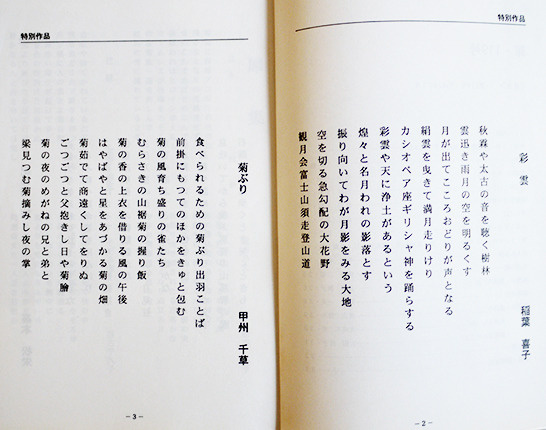 特別作品
彩雲
稲葉 喜子
秋霖や太古の音を聴く樹林
雲迅き雨月の空を明るくす
月が出てこころおどりが声となる
絹雲を曳きて満月走りけり
カシオペア座ギリシャ神を踊らする
彩雲や天に浄土があるという
煌々と名月われの影落とす
振り向いてわが月影をみる大地
空を切る急勾配の大花野
観月会富士山須走登山道
－2－
特別作品
菊ぶり
甲州 千草
食べられるための菊ぶり出羽ことば
前掛にもつてのほかをきゅと包む
菊の風育ち盛りの雀たち
むらさきの山裾菊の握り飯
菊の香の上衣を借りる風の午後
はやばやと星をあづかる菊の畑
菊茹でて商遠くしてをりぬ
ごつごつと父抱きし日や菊膾
菊の夜のめがねの兄と弟と
梁見つむ菊摘みし夜の掌
－3－